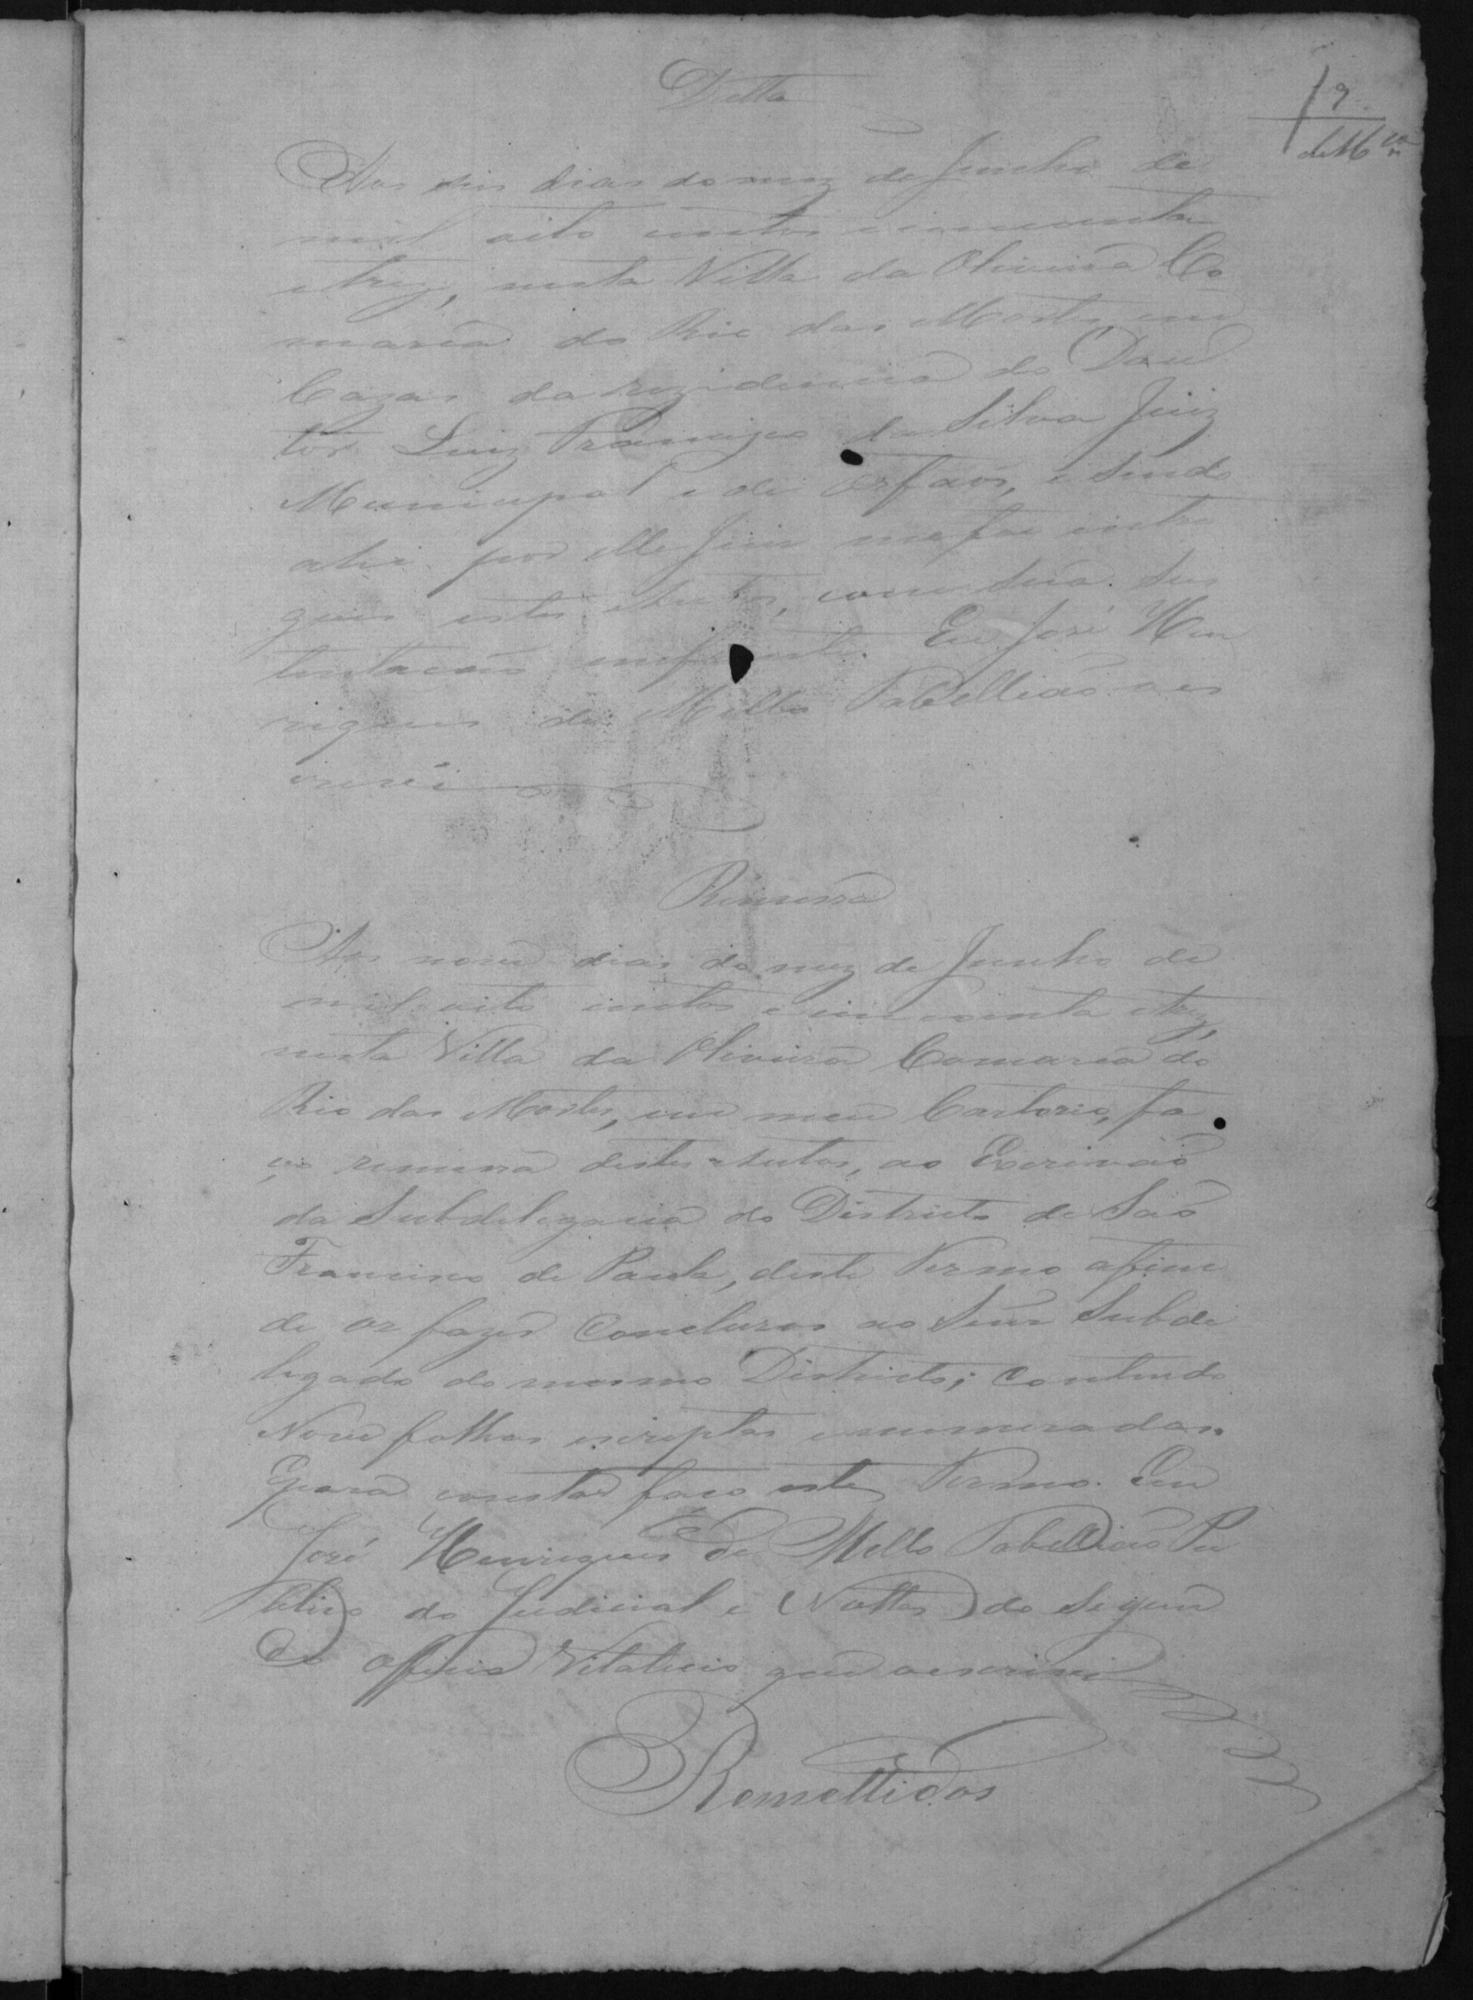 Datta
9
de Mello
Aos seis dias do mez de Junho de
mil oito centos e cincoenta
e trez, nesta Villa da Oliveira Co
marca do Rio das Mortes em
Cazas da rezidencia do Dou
tor Luiz Francisco da Silva Juiz
Municipal e de Orfãos, e sendo
ahi por elle Juiz me foi entre
gues estes Autos, com sua sus
tentação infronte. Eu José Hen
riques de Mello Tabellião o es
crevi
Remessa
Aos nove dias do mez de Junho de
mil oito centos e cincoenta e trez,
nesta Villa da Oliveira Comarca do
Rio das Mortes, em meu Cartorio, fa
ço remessa destes Autos, ao Escrivão
da Subdelegacia do Districto de São
Francisco de Paula, deste Termo afim
de os fazer Concluzos ao Senr Subde
legado do mesmo Districto; Contendo
Nove folhas escriptas e numeradas.
Epara constar faço este Termo. Eu
José Henriques de Mello Tabellião Pu
blico do Judicial e Nottas do Segun
do Officio Vitalicio que o escrevi
Remettidos